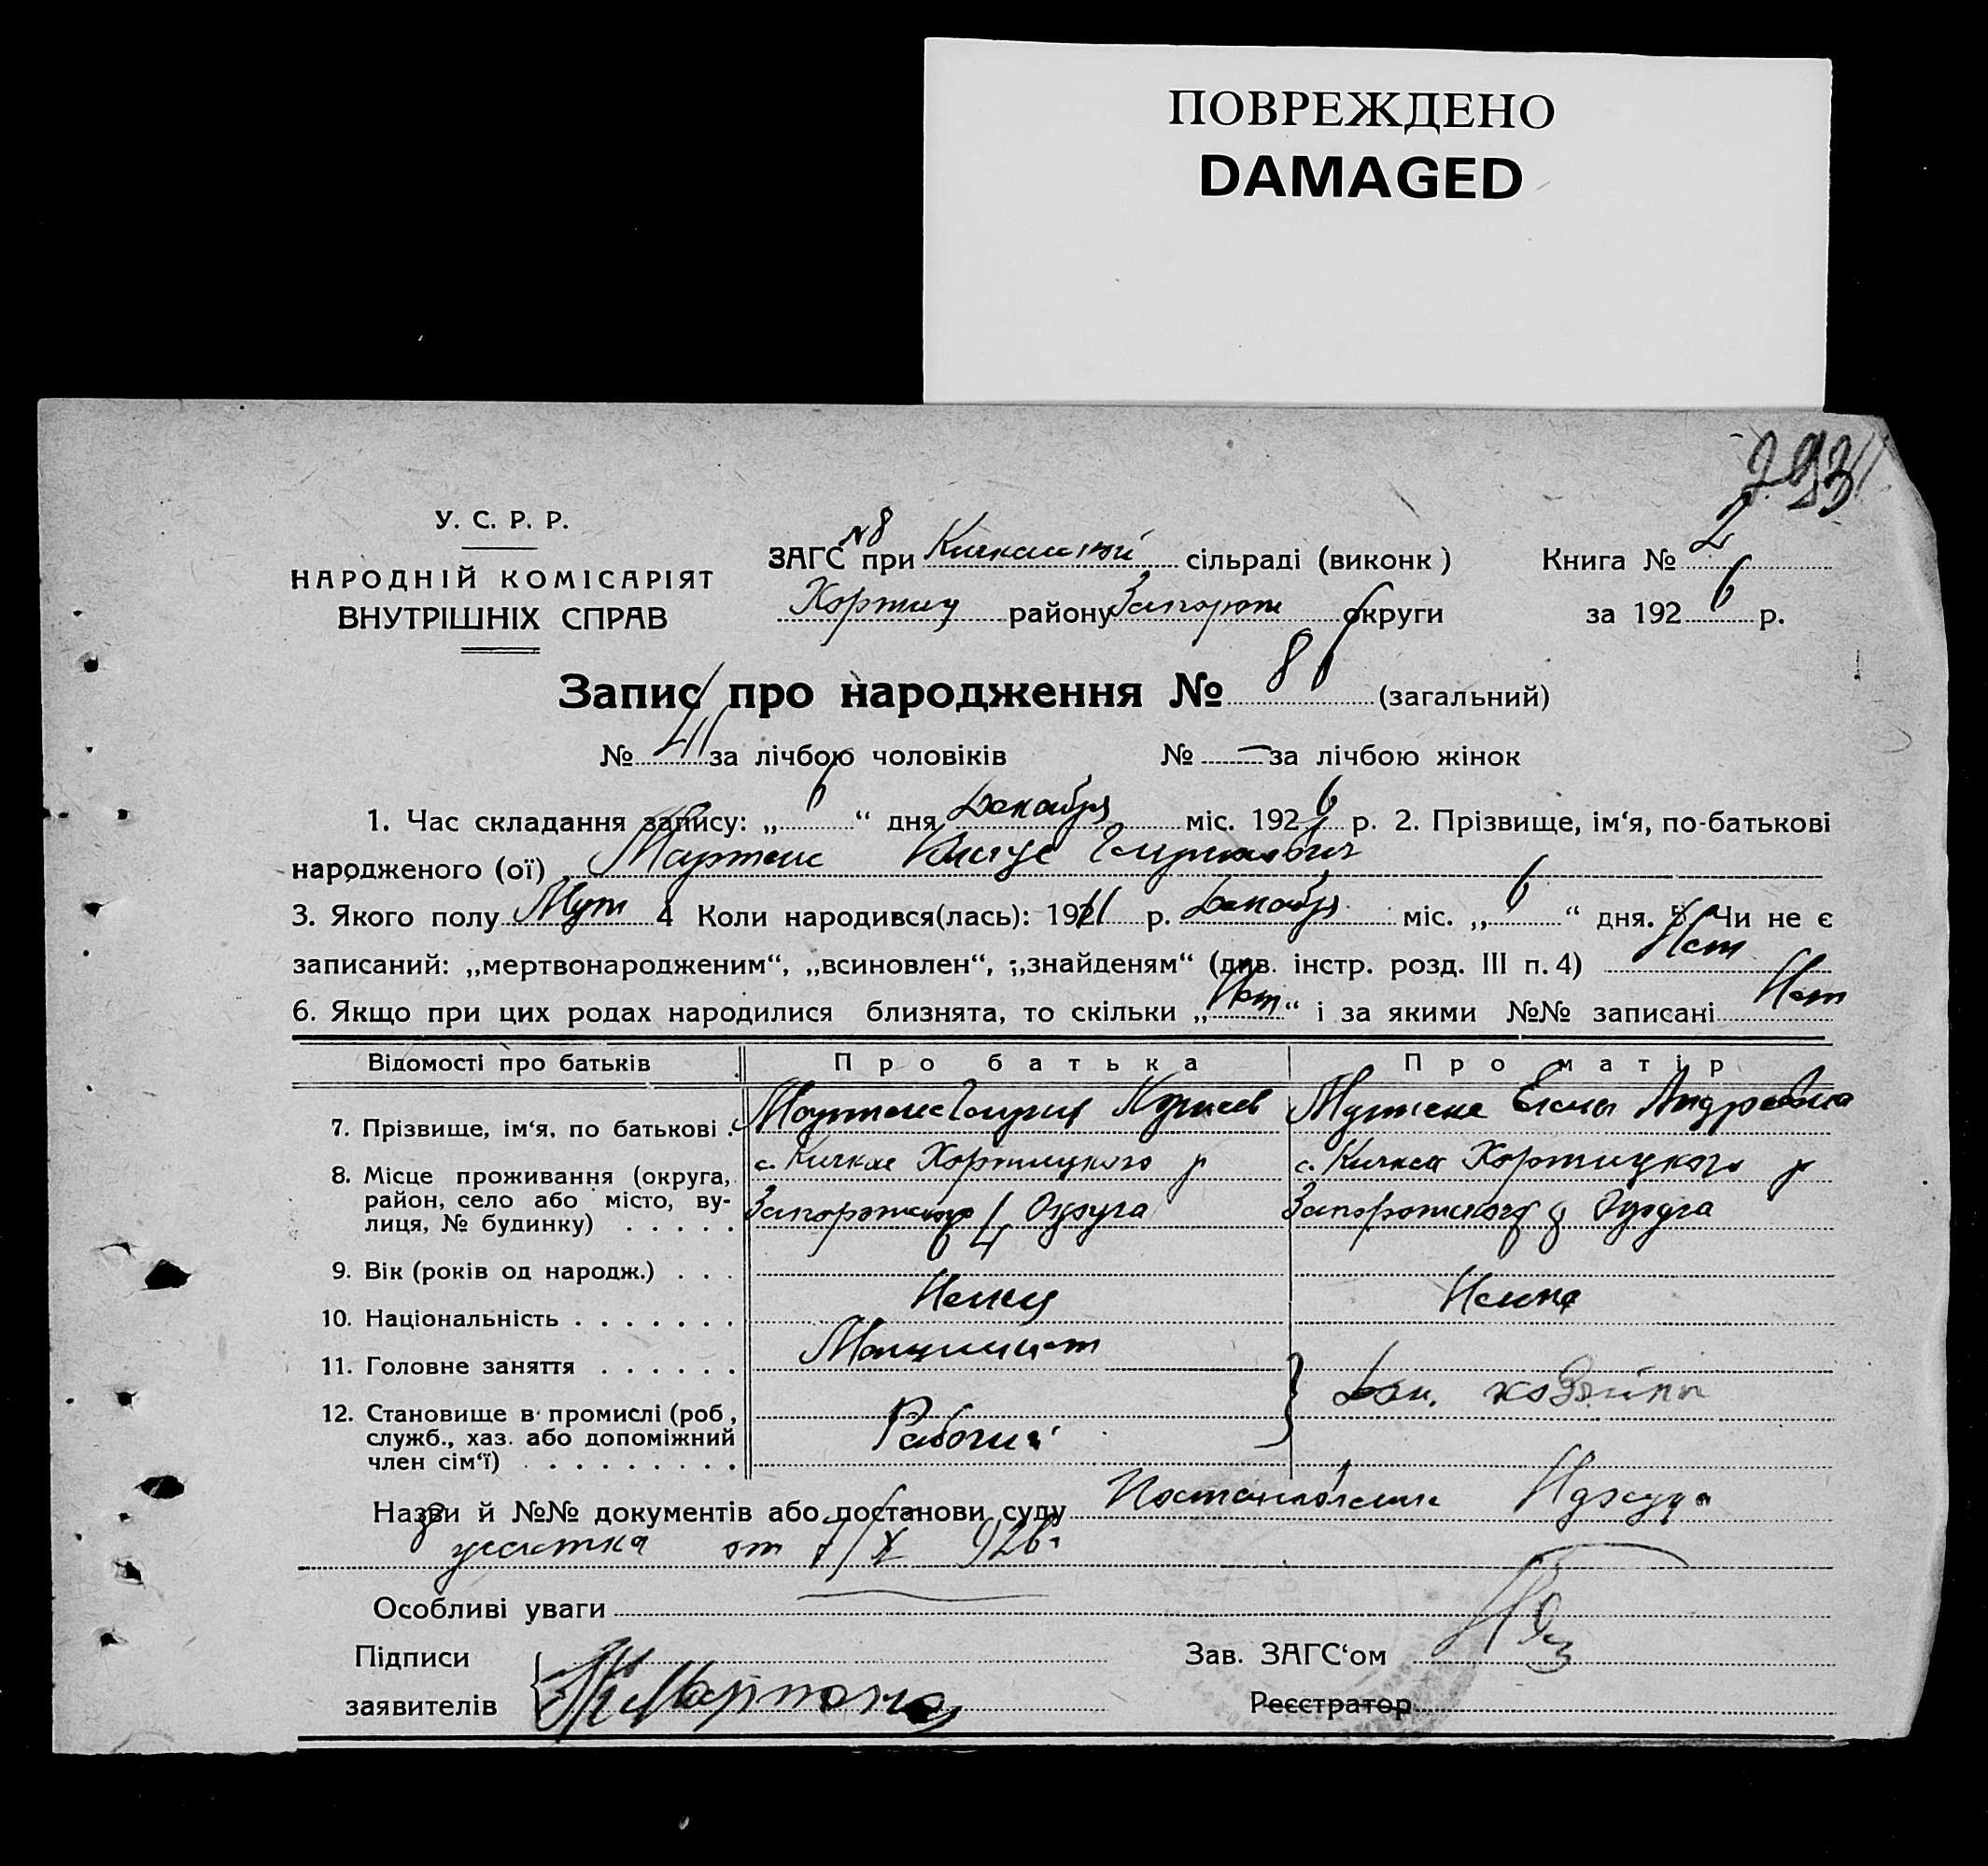 ПОВРЕЖДЕНО
DAMAGED
293
У. С. Р. Р.
НАРОДНІЙ КОМІСАРІЯТ
ВНУТРІШНІХ СПРАВ
ЗАГС №8 при Кичкасской сільраді (виконк)
Хортиц району Запорож округи
Книга № 2
за 1926 р.
Запис про народження № 86 (загальний)
№ 41 за лічбою чоловіків № — за лічбою жінок
1. Час складання запису: „ 6 “ дня Декабря міс. 1926 р. 2. Прізвище, ім‘я, по-батькові
народженого (ої) Мартенс
3. Якого полу Муж 4 Коли народився(лась): 19 11 р. Декабря міс. „ 6 “ дня. 5. Чи не є
записаний: „мертвонародженим“, „всиновлен“, „знайденям“ (див. інстр. розд. III п. 4) Нет
6. Якщо при цих родах народилися близнята, то скільки „ Нет “ і за якими №№ записані Нет
Відомості про батьків Про батька Про матір
7. Прізвище, ім‘я, по батькові . Мартенс Гергард Мартенс Елены Андреевна
8. Місце проживання (округа, район, село або місто, вулиця, № будинку) . . . . .
с. Кичкас Хортицкого р с. Кичкас Хортицкого р
Запорожского Округа Запорожского Округа
9. Вік (років од народж.) . . . 64
10. Національність . . . . . . . Немец Немка
11. Головне заняття . . . . . . Машинист
12. Становище в промислі (роб., служб., хаз. або допоміжний член сім‘ї) . . . . . . . . . Рабочий
Дом. хозяйка
Назви й №№ документів або постанови суду Постановление Нарсуда
участка от 7/X 926г
Особливі уваги
Підписи
заявителів
Зав. ЗАГС‘ом
Реєстратор